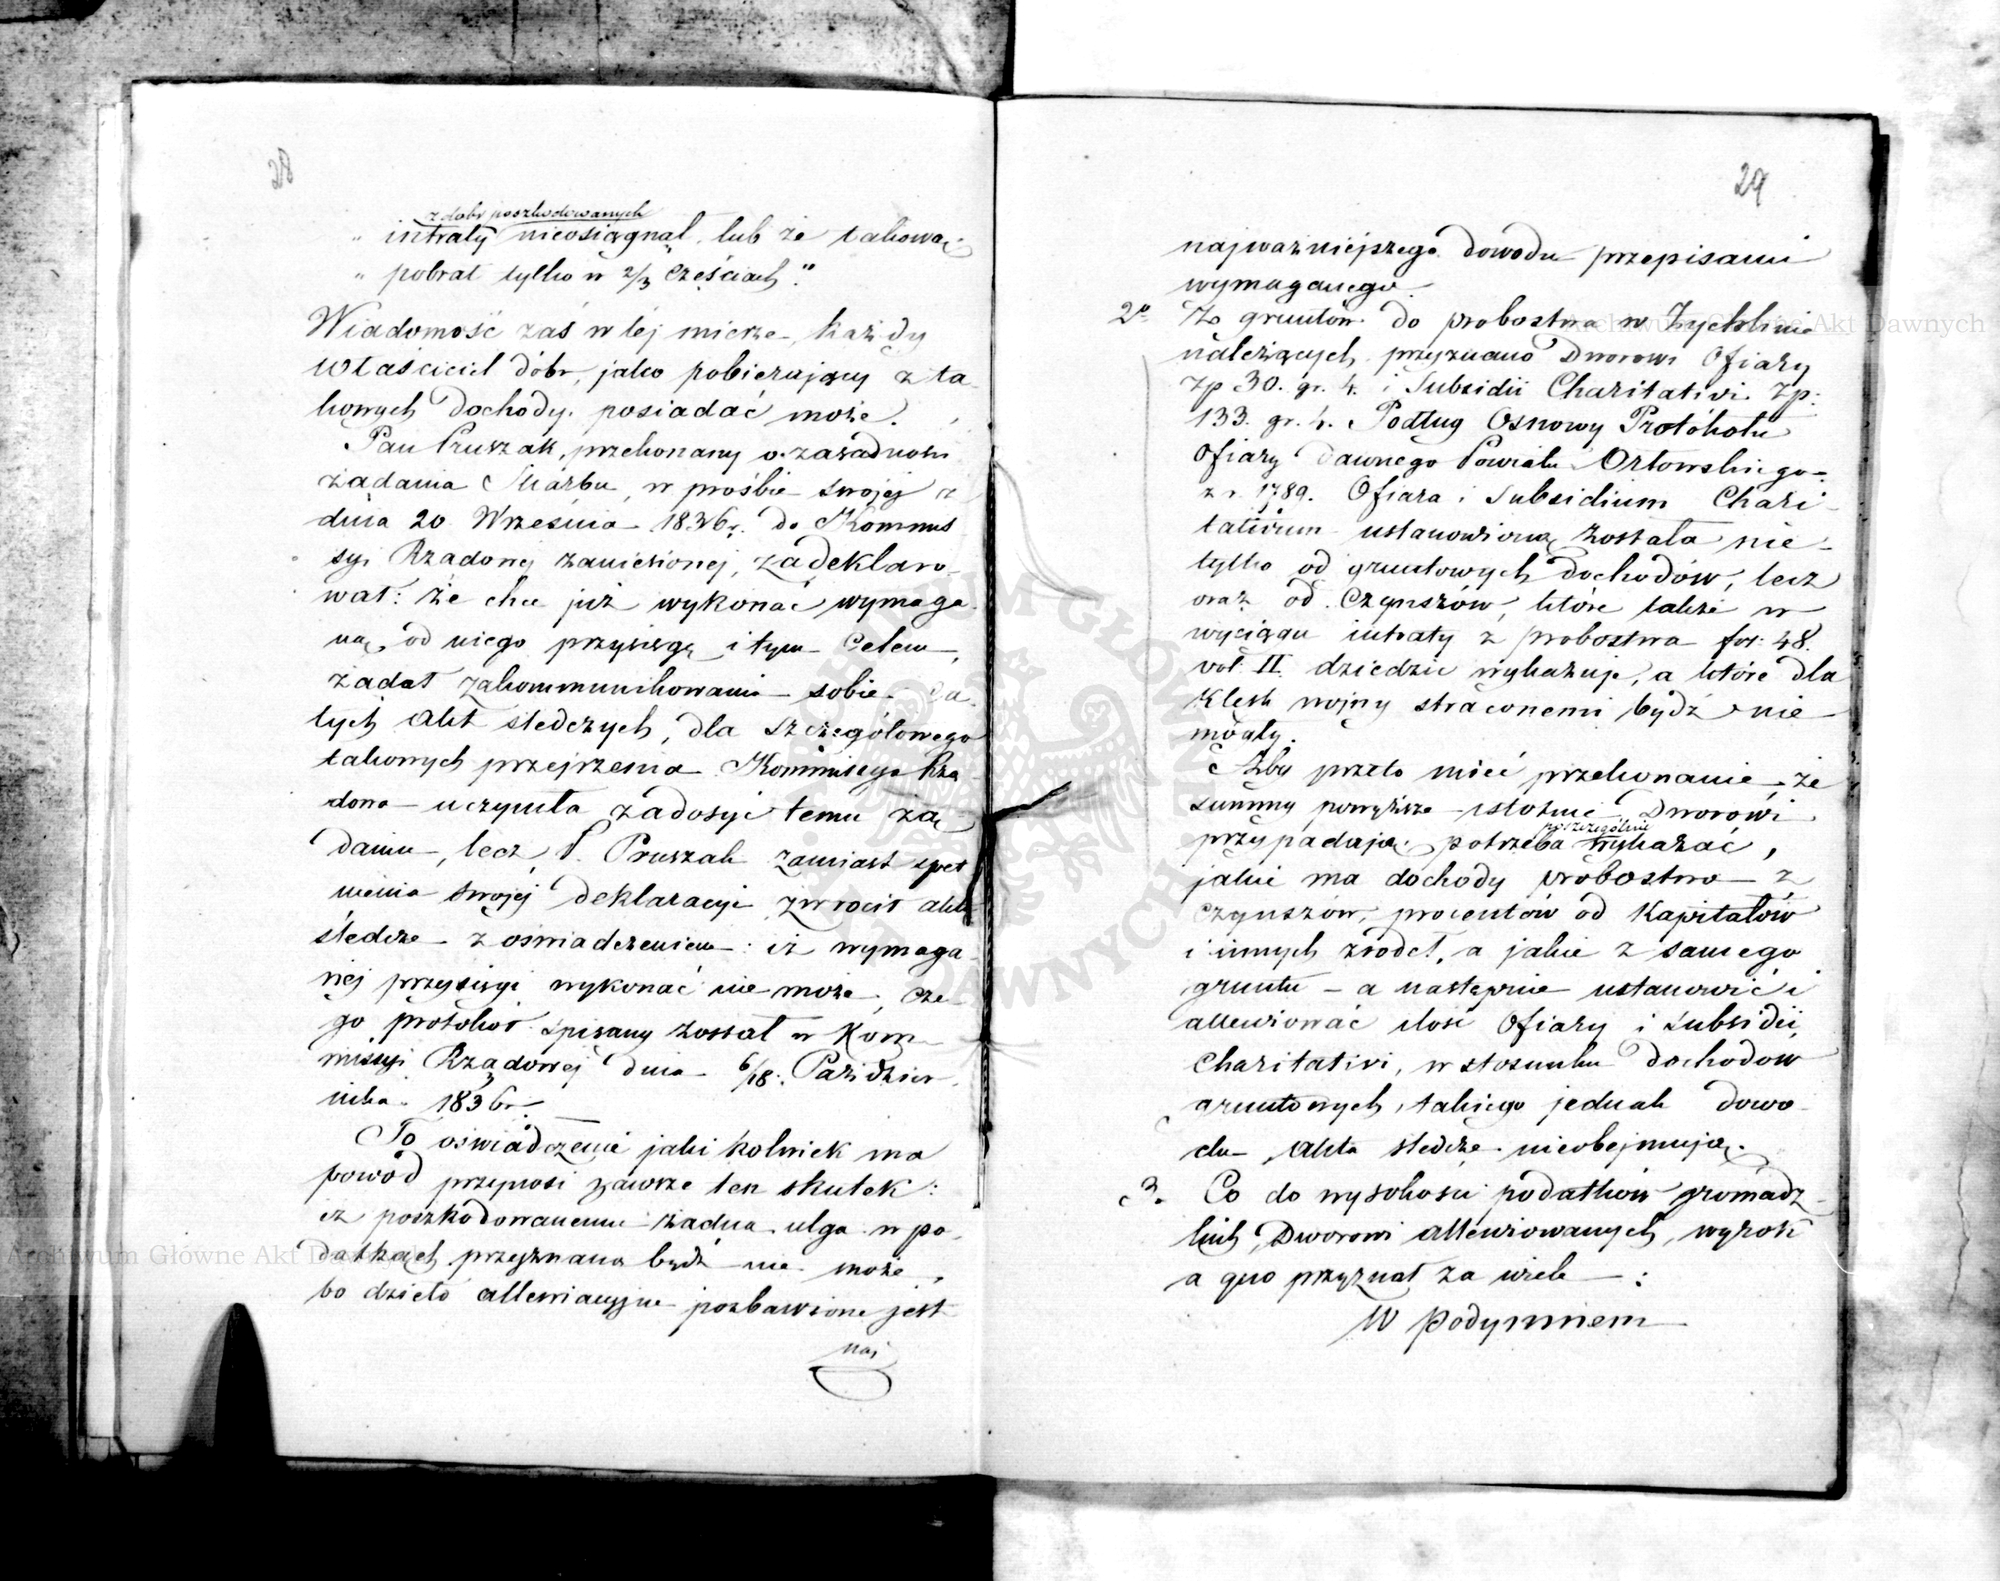 28
z dobr poszkodowanych
„ intraty nieosiągnął, lub że takową
„ pobrał tylko w 2/3 częściach."
Wiadomość zaś w tej mierze każdy
właściciel dóbr, jako pobierający z ta-
kowych dochody, posiadać może.
Pan Pruszak, przekonany o zasadności
żądania Skarbu, w prośbie swojej z
dnia 20 Września 1836 r. do Kommis
syi Rządowej zaniesionej, zadeklaro-
wał: że chce już wykonać wymaga-
ną od niego przysięgę i tym celem
żądał zakommunikowania sobie ca-
łych akt śledczych, dla szczegółowego
takowych przejrzenia. Kommissya Rzą
dowa uczyniła zadosyć temu żą-
daniu, lecz P. Pruszak zamiast speł
nienia swojej deklaracyi zwrócił akta
śledcze z oświadczeniem: iż wymaga-
nej przysięgi wykonać nie może, cze-
go protokół spisany został w Kom-
missyi Rządowej dnia 6/18 Paździer-
nika 1836 r.
To oświadczenie jaki kolwiek ma
powód przynosi zawsze ten skutek:
iż poszkodowanemu żadna ulga w po-
datkach przyznana bydź nie może,
bo dzieło allewiacyjne pozbawione jest
naj
29
najważniejszego dowodu przepisami
wymaganego.
2o Z gruntów do probostwa w Żychlinie
należących przyznano Dworowi Ofiary
Zp 30. gr. 4. i Subsidii Charitativi Zp:
133. gr. 4. Podług Osnowy Protókołu
Ofiary dawnego Powiatu Orłowskiego
z r. 1789. Ofiara i Subsidium Chari-
tativum ustanowioną została nie-
tylko od gruntowych dochodów, lecz
oraz od Czynszów, które także w
wyciągu intraty z probostwa fol: 48.
vol. II. dziedzic wykazuje, a które dla
Klęsk wojny straconemi bydź nie
mogły.
Aby przeto mieć przekonanie, że
summy powyższe istotnie Dworowi
poszczególnie
przypadają potrzeba wykazać,
jakie ma dochody probostwo z
czynszów, procentów od Kapitałów
i innych źrodeł, a jakie z samego
gruntu – a następnie ustanowić i
allewiować ilość Ofiary i Subsidii
Charitativi, w stosunku dochodow
gruntowych, takiego jednak dowo-
du Akta śledcze nieobejmują.
3. Co do wysokości podatków gromadz-
kich, Dworowi allewiowanych, wyrok
a quo przyznał za wiele :
W podymnem
Archiwum Główne Akt Dawnych
Archiwum Główne Akt Dawnych
ARCHIWUM GŁÓWNE AKT DAWNYCH